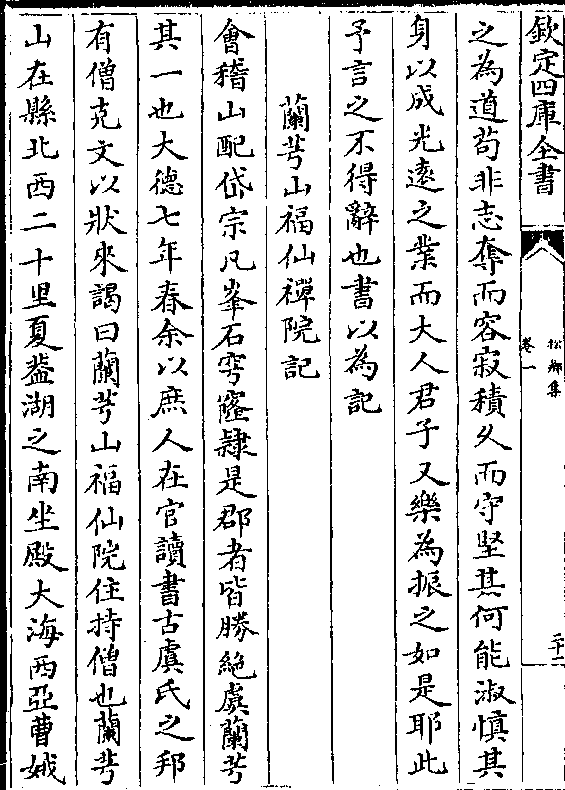 欽定四庫全書
松鄉集
卷一
二十二
之為道苟非志奪而容寂積久而守堅其何能淑慎其
身以成光遠之業而大人君子又樂為振之如是耶此
予言之不得辭也書以為記
蘭芎山福仙禪院記
會稽山配岱宗凡峯石穹窿隸是郡者皆勝絶虞蘭芎
其一也大德七年春余以庶人在官讀書古虞氏之邦
有僧克文以狀來謁曰蘭芎山福仙院住持僧也蘭芎
山在縣北西二十里夏葢湖之南坐殿大海西亞曹娥